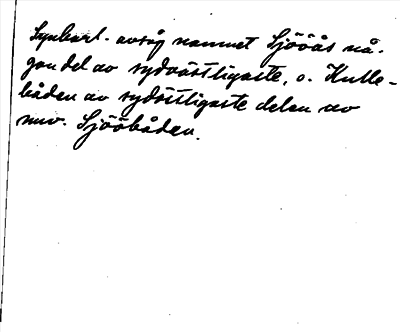 Synbart. avsåg namnet Sjööås nå-
gon del av sydvästligaste, o. Kulle-
båden av sydöstligaste delen av
nuv. Sjööbåden.